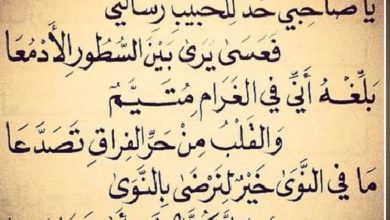 يَا صَاحِبِي خُذْ لِلْحَبِيبِ رِسَالَتِي
فَعَسَى يَرَى بَيْنَ السُّطُورِ الأَدْمُعَا
بَلِّغْهُ أَنِّي فِي الغَرَامِ مُتَيَّمٌ
وَالقَلْبُ مِنْ حَرِّ الفِرَاقِ تَصَدَّعَا
مَا فِي النَّوَى خَيْرٌ لِنَرْضَى بِالنَّوَى